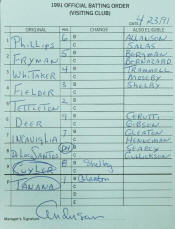 1991 OFFICIAL BATTING ORDER
(VISITING CLUB)
DATE 4/23/91
ORIGINAL POS. CHANGE ALSO ELIGIBLE
1 Phillips 6 B ALLANSON
C SALAS
2 FRYMAN 5 B BERGMAN
C BERNAZARD
3 WHITAKER 4 B TRAMMELL
C MOSEBY
4 FIELDER 3 B SHELBY
C
5 TETTLETON 2 B
C
6 DEER 9 B CERUTTI
C GIBSON
7 INCAVIGLIA 7 B GLEATON
C HENNEMAN
8 DE LOS SANTOS DH B SEARCY
C GULLICKSON
9 CUYLER 8 B Shelby
C
P TANANA 1 B Gleaton
C
Manager's Signature Anderson